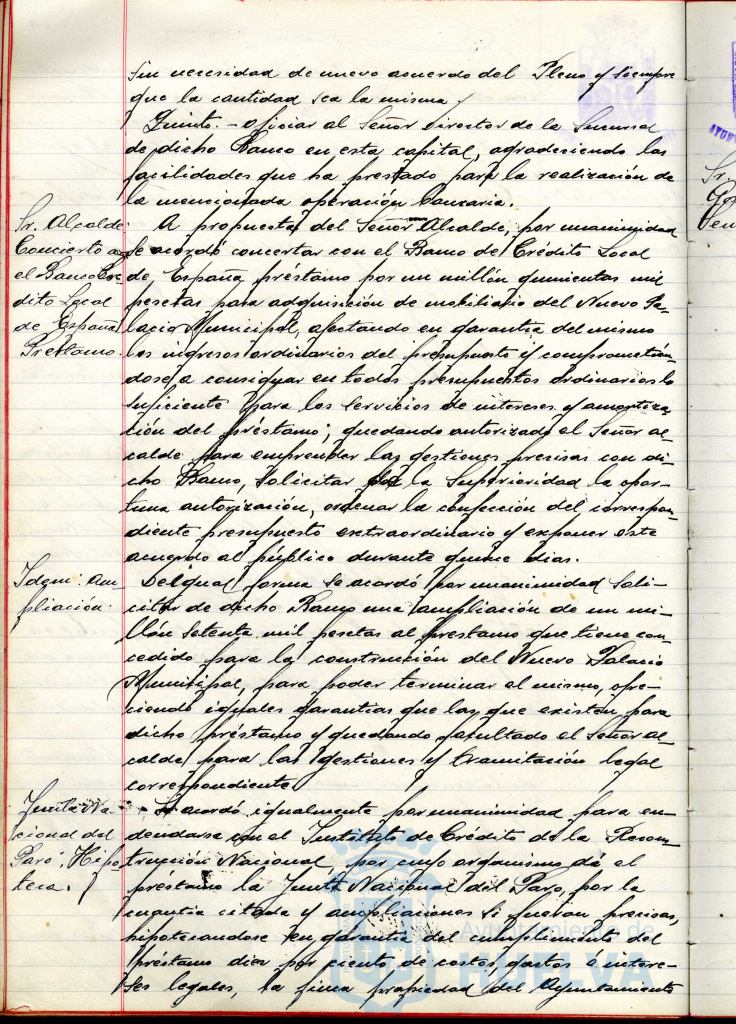 sin necesidad de nuevo acuerdo del Pleno y siempre
que la cantidad sea la misma.
Quinto.- Oficiar al Señor Director de la Sucursal
de dicho Banco en esta capital, agradeciendo las
facilidades que ha prestado para la realización de
la mencionada operación bancaria.
Sr. Alcalde
Concierto
el Banco Cré-
dito Local
de España
Prestamo.
A propuesta del Señor Alcalde, por unanimidad
se acordó concertar con el Banco de Crédito Local
de España préstamo por un millón quinientas mil
pesetas para adquisición de mobiliario del Nuevo Pa-
lacio Municipal, afectando en garantía del mismo
los ingresos ordinarios del presupuesto y comprometién-
dose a consignar en todos presupuestos ordinarios lo
suficiente para los servicios de intereses y amortiza-
ción del préstamo; quedando autorizado el Señor al-
calde para emprender las gestiones precisas con di-
cho Banco, solicitar la Superioridad la opor-
tuna autorización, ordenar la confección del correspon-
diente presupuesto extraordinario y exponer este
acuerdo al público durante quince dias.
Idem: Am-
pliación.
De igual forma se acordó por unanimidad soli-
citar de dicho Banco una ampliación de un mi-
llón setenta mil pesetas al prestamo que tiene con-
cedido para la construcción del Nuevo Palacio
Municipal, para poder terminar el mismo, ofre-
ciendo iguales garantias que las que existen para
dicho préstamo y quedando facultado el Señor al-
calde para las gestiones y tramitación legal
correspondiente
Junta Na-
cional del
Paro, Hipo-
teca.
Se acordó igualmente por unanimidad para en-
deudarse con el Instituto de Crédito de la Recons-
trucción Nacional, por cuyo organismo dá el
préstamo la Junta Nacional del Paro, por la
cuantia citada y ampliaciones si fueran precisas,
hipotecandose en garantía del cumplimiento del
préstamo diez por ciento de costos, gastos e intere-
ses legales, la finca propiedad del Ayuntamiento
Ayuntamiento de
HUELVA
Sr.